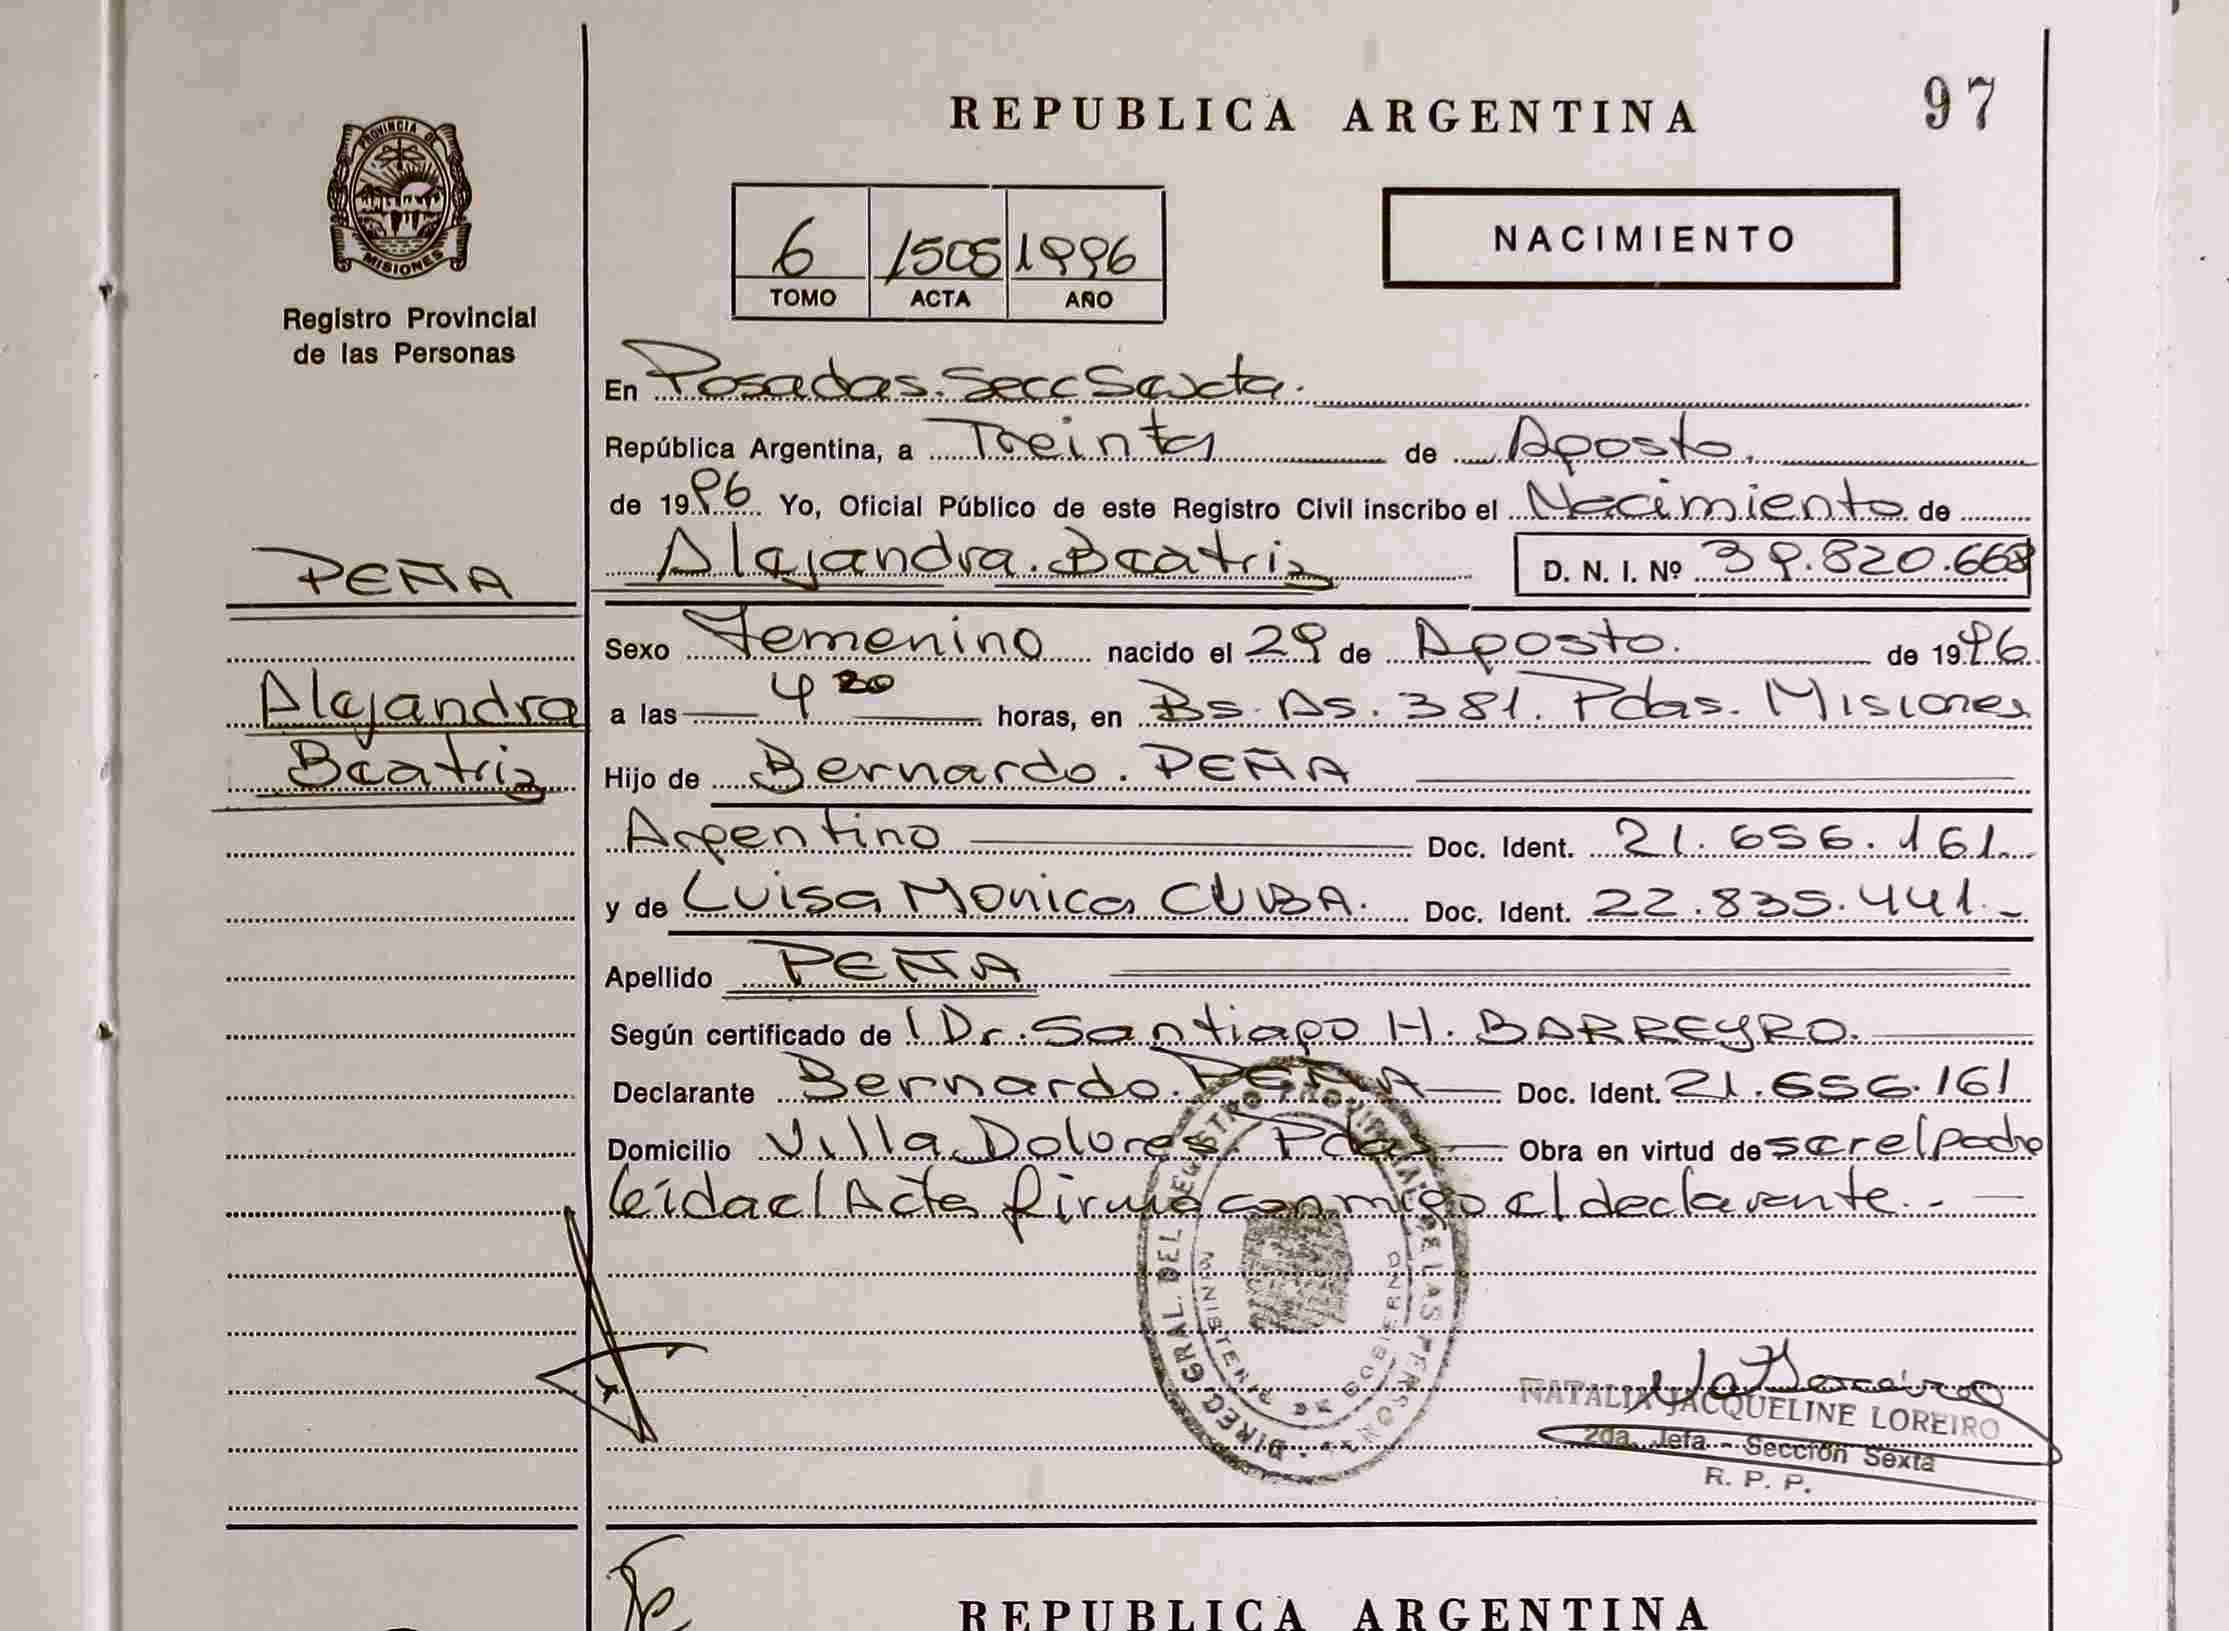 REPUBLICA ARGENTINA
97
PROVINCIA DE
MISIONES
Registro Provincial
de las Personas
6 1505 1996
TOMO ACTA AÑO
NACIMIENTO
En Posadas. Secc Sexta.
República Argentina, a Treinta de Agosto.
de 1996 Yo, Oficial Público de este Registro Civil inscribo el Nacimiento de
PEÑA
Alejandra Beatriz
Alejandra. Beatriz D. N. I. Nº 39.820.668
Sexo Femenino nacido el 29 de Agosto. de 1996.
a las 4 20 horas, en Bs. As. 381. Pdas. Misiones
Hijo de Bernardo. PEÑA
Argentino Doc. Ident. 21.656.161.
y de Luisa Monica CUBA. Doc. Ident. 22.835.441.-
Apellido PEÑA
Según certificado de l Dr. Santiago H. BARREYRO.
Declarante Bernardo. PEÑA Doc. Ident. 21.656.161
Domicilio Villa Dolores. Pdas Obra en virtud de ser el padre
leida el Acta firma conmigo el declarante.-
DIREC. GRAL. DEL REGISTRO PROVINCIAL DE LAS PERSONAS
MINISTERIO DE GOBIERNO
NATALIA JACQUELINE LOREIRO
2da. Jefa - Sección Sexta
R. P. P.
REPUBLICA ARGENTINA